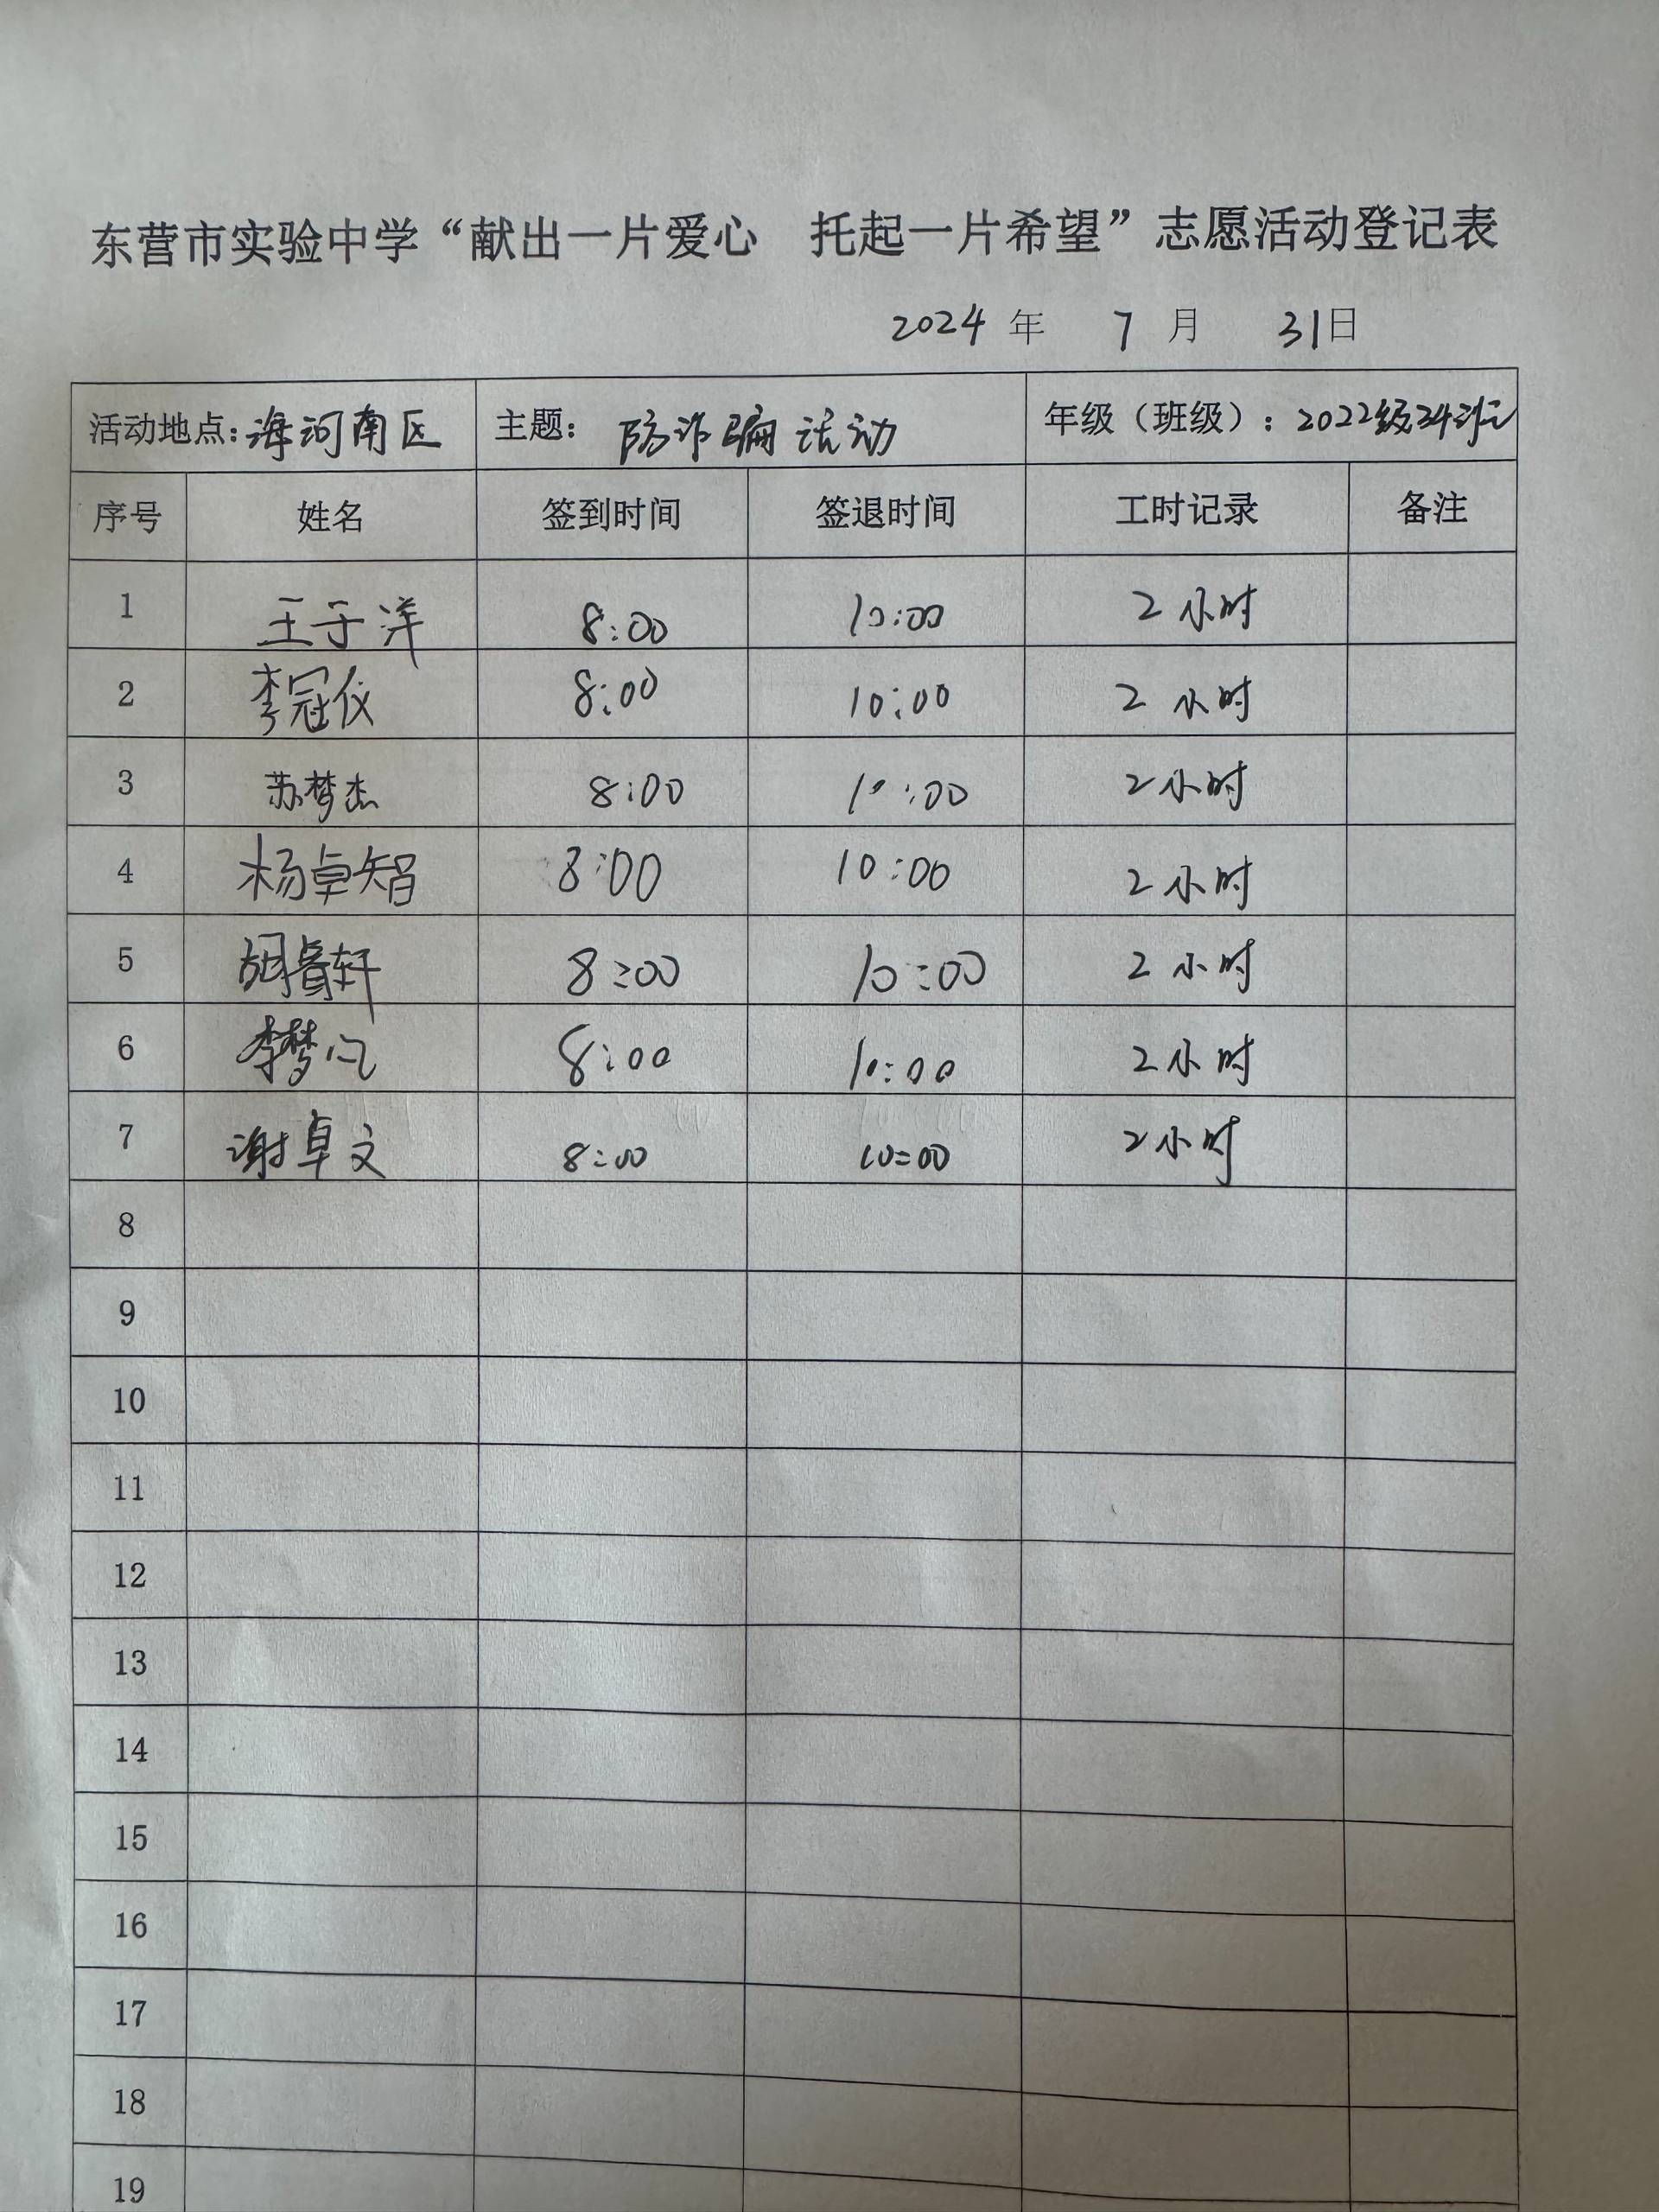 东营市实验中学“献出一片爱心 托起一片希望”志愿活动登记表
2024 年 7 月 31日
活动地点：海河南区 主题： 防诈骗活动 年级（班级）：2022级34班
序号 姓名 签到时间 签退时间 工时记录 备注
1 王于洋 8:00 10:00 2 小时
2 李冠仪 8:00 10:00 2 小时
3 苏梦杰 8:00 10:00 2小时
4 杨卓智 8:00 10:00 2小时
5 胡睿轩 8:00 10:00 2 小时
6 李梦 8:00 10:00 2小时
7 谢卓文 8:00 10:00 2小时
8
9
10
11
12
13
14
15
16
17
18
19